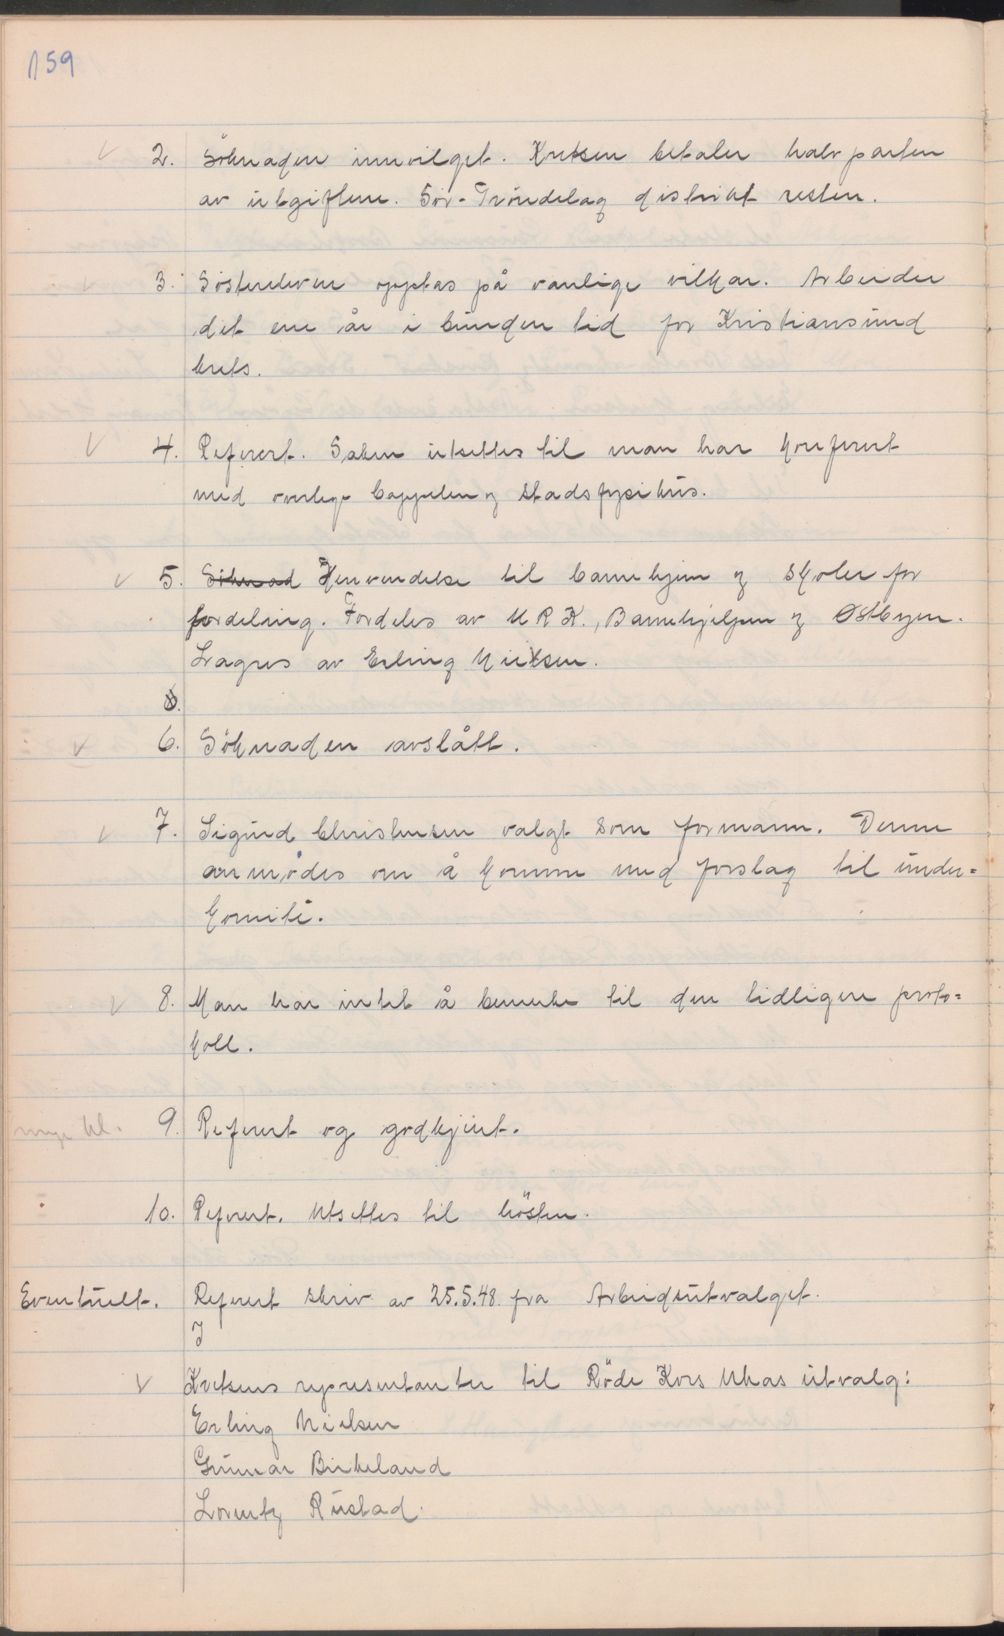 159
2. Söknaden innvilget. Kretsen betaler halvparten
av utgiftene. Sör-Tröndelag distrikt resten.
3. Sösterelven opptas på vanlige vilkar. Arbeider
det ene år i bunden tid for Kristiansund
krets.
4. Referert. Saken utsettes til man har konferert
med overlege Cappelen og stadsfysikus.
5. Söknad Henvendelse til barnehjem og skoler for
fordeling. Fordeles av U R K., Barnehjelpen og Østbyen.
Lagres av Erling Nielsen.
6. Söknaden avslått.
7. Sigurd Christensen valgt som formann. Denne
anmodes om å komme med forslag til under=
komité.
8. Man har intet å bemerke til den tidligere proto=
koll.
9. Referert og godkjent.
10. Referert. Utsettes til hösten.
Eventuelt. Referert skriv av 25.5.48 fra Arbeidsutvalget.
Kretsens representanter til Röde Kors Ukas utvalg:
Erling Nielsen
Gunnar Birkeland
Lorentz Rustad.